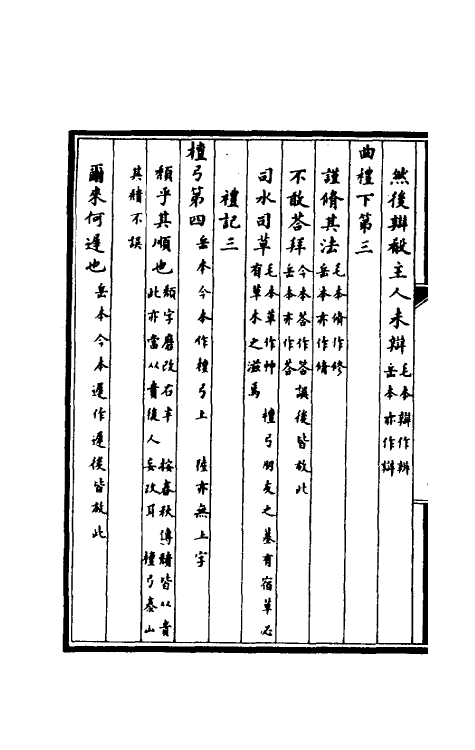 然後辯殽主人未辯 毛本辯作辨 岳本亦作辯
曲禮下第三
謹脩其法 毛本脩作修 岳本亦作脩
不敢荅拜 今本荅作答誤後皆放此 岳本亦作荅
司水司草 毛本草作艸 檀弓朋友之墓有宿草必 有草木之滋焉
禮記三
檀弓第四 岳本今本作檀弓上 陸亦無上字
頹乎其順也 頹字磨改右半 按春秋傳穨皆从貴 此亦當从貴後人妄改耳 檀弓泰山
其穨不誤
爾來何遟也 岳本今本遟作遲後皆放此